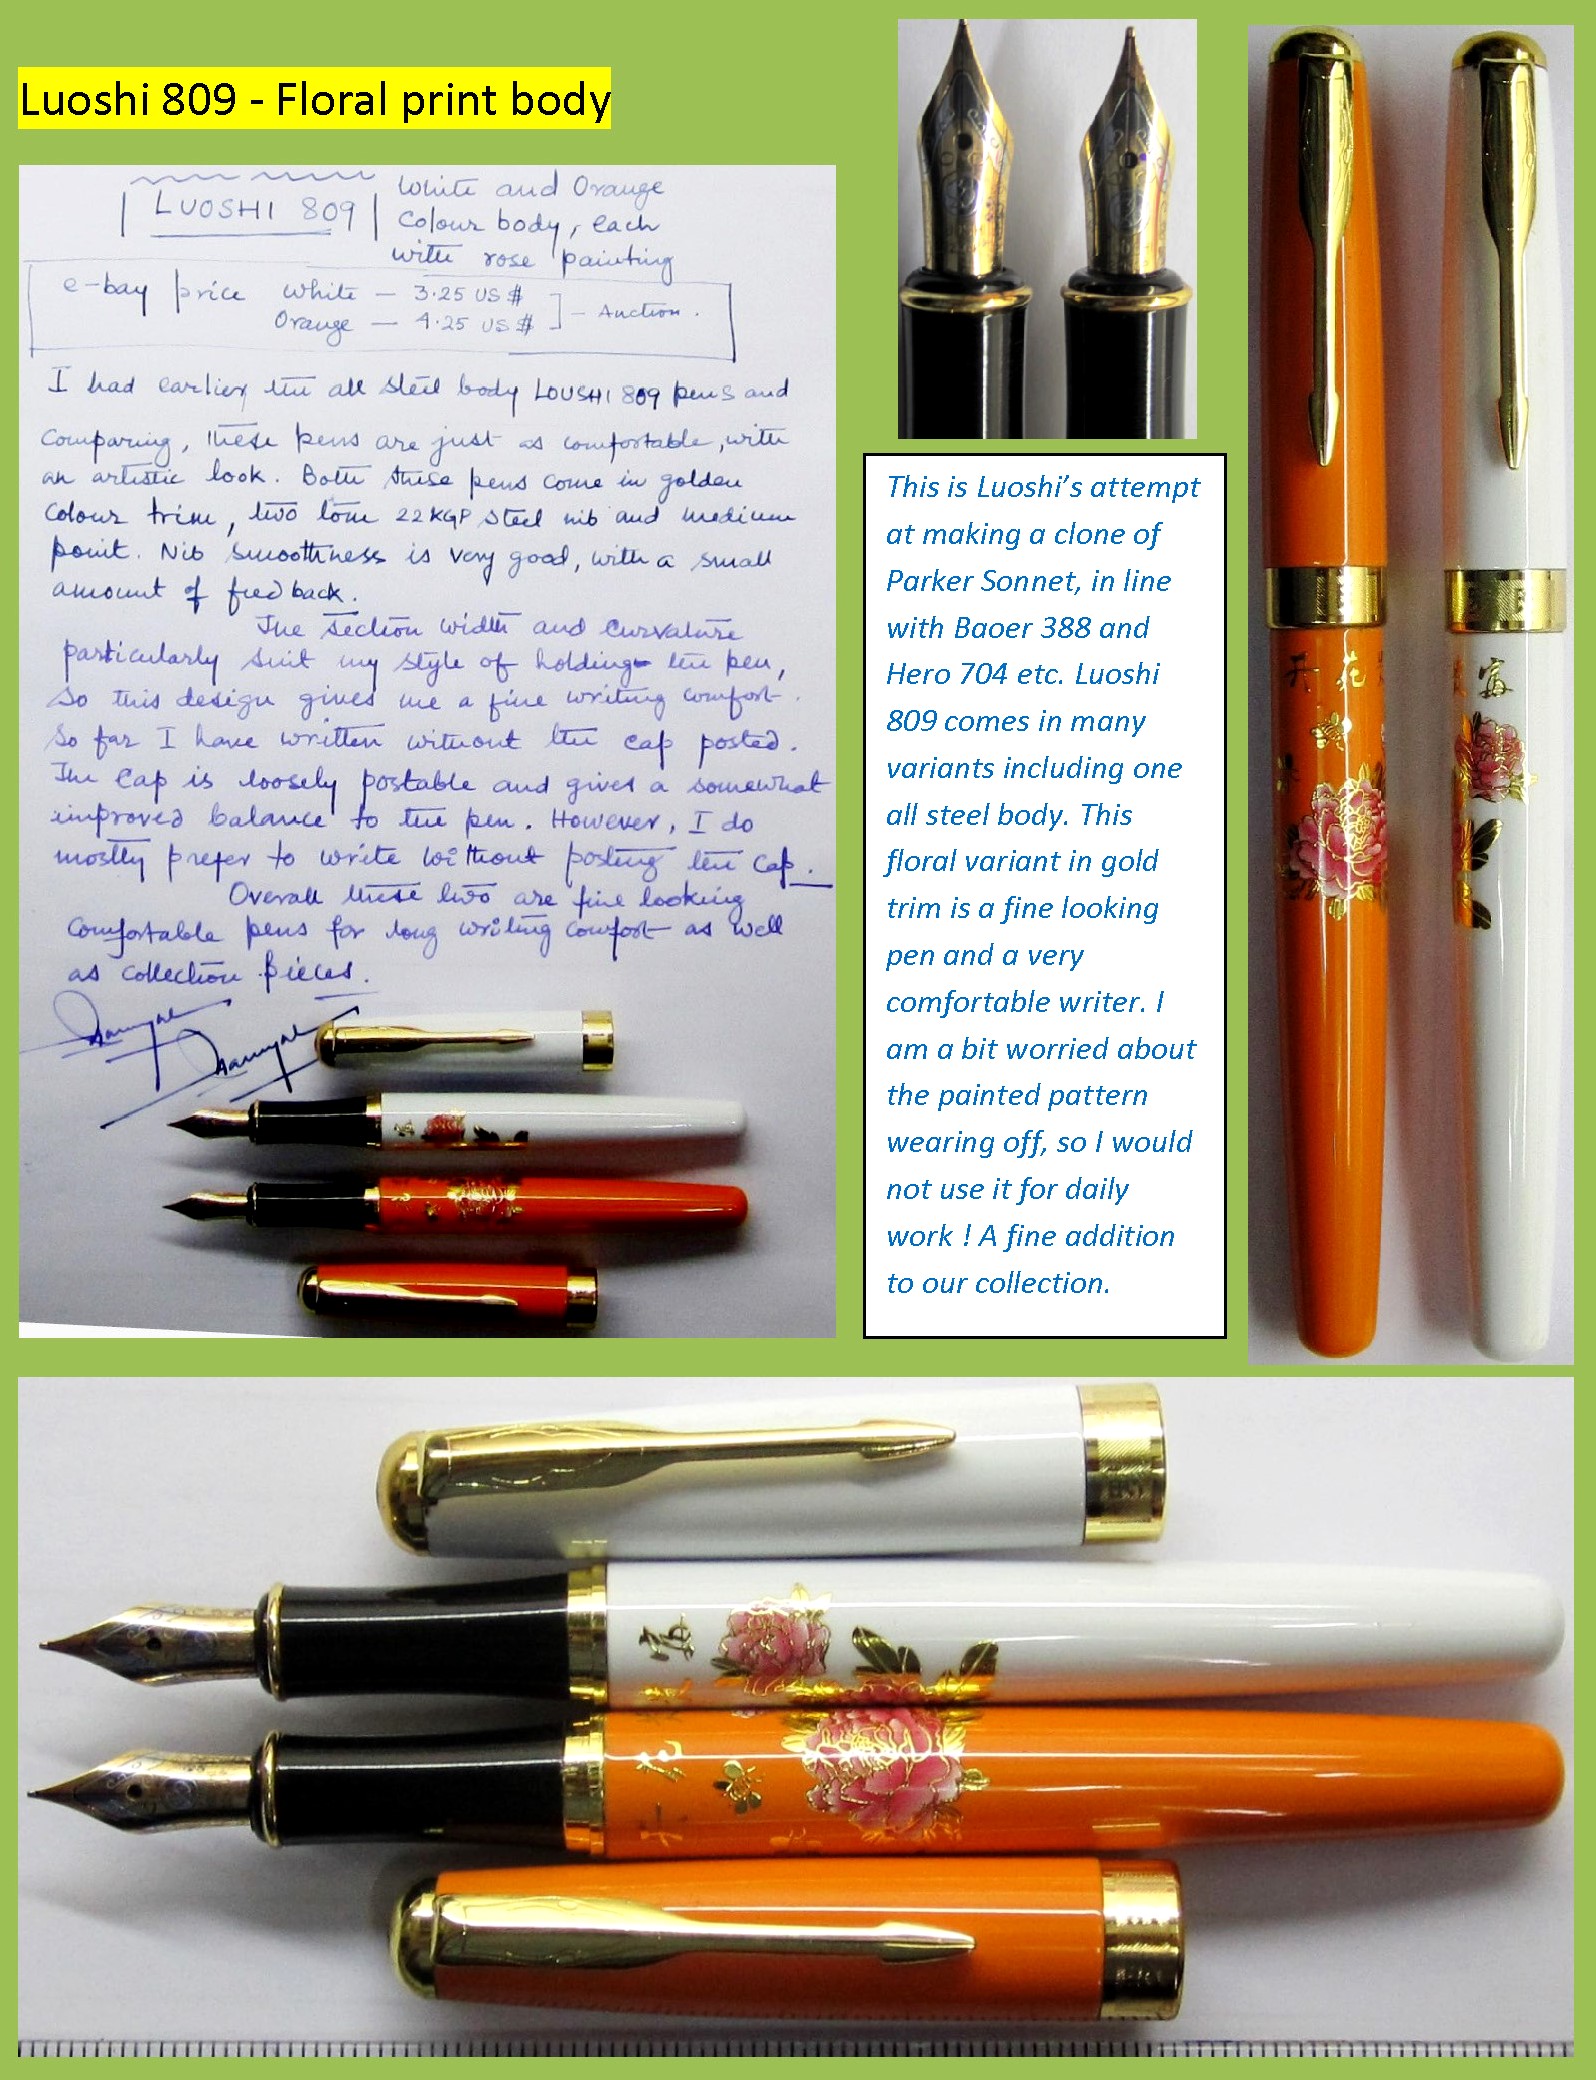 Luoshi 809 - Floral print body
LUOSHI 809
White and Orange
Colour body, each
with rose painting
e-bay price White — 3.25 US $
Orange — 4.25 US $ - Auction.
I had earlier the all steel body LOUSHI 809 pens and
comparing, these pens are just as comfortable, with
an artistic look. Both these pens come in golden
colour trim, two tone 22KGP steel nib and medium
point. Nib smoothness is very good, with a small
amount of feedback.
The section width and curvature
particularly suit my style of holding the pen,
so this design gives me a fine writing comfort.
So far I have written without the cap posted.
The cap is loosely postable and gives a somewhat
improved balance to the pen. However, I do
mostly prefer to write without posting the cap.
Overall these two are fine looking
comfortable pens for long writing comfort as well
as collection pieces.
This is Luoshi's attempt
at making a clone of
Parker Sonnet, in line
with Baoer 388 and
Hero 704 etc. Luoshi
809 comes in many
variants including one
all steel body. This
floral variant in gold
trim is a fine looking
pen and a very
comfortable writer. I
am a bit worried about
the painted pattern
wearing off, so I would
not use it for daily
work ! A fine addition
to our collection.
开花
富